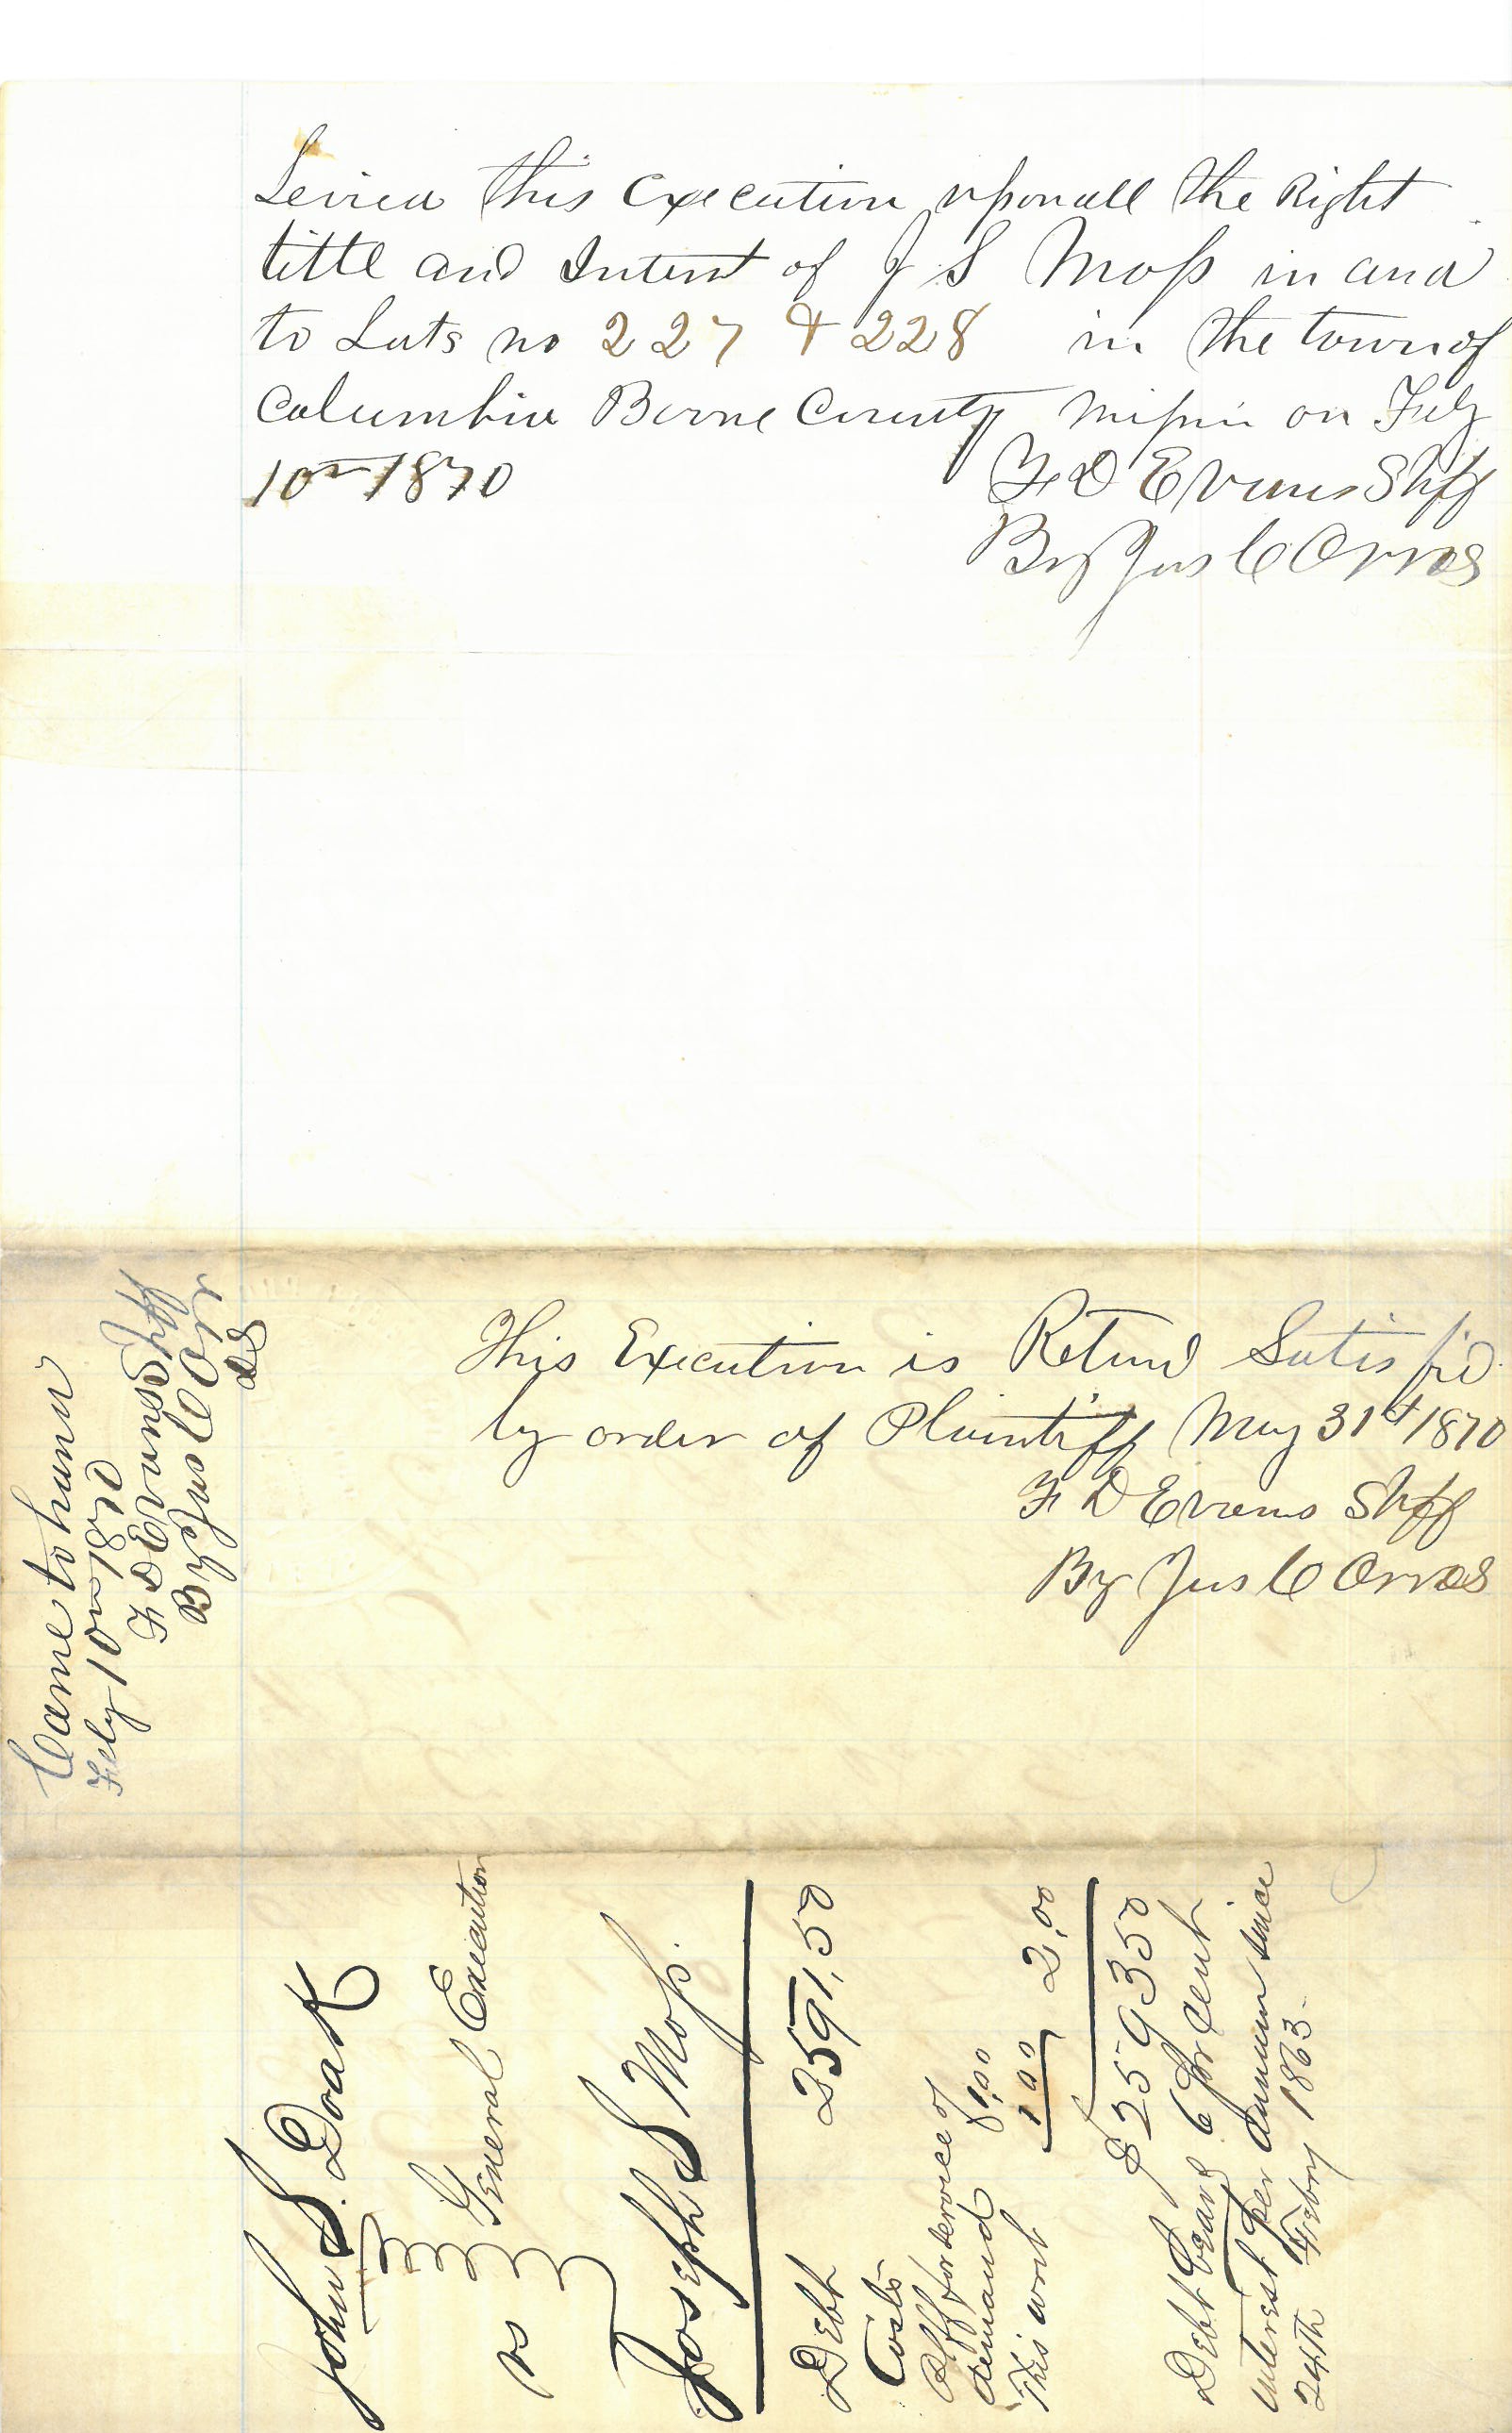 Levied this Execution upon all the Right
title and Interest of J S Moss in and
to Lots no 227 & 228 in the town of
Columbia Boone County Missouri on Feby
10th 1870
F D Evans Shff
By Jas C Orr DS
Came to hand
Feby 10th 1870
F D Evans Shff
By Jas C Orr
DS
This Execution is Retund Satisfid
by order of Plaintiff May 31st 1870
F D Evans Shff
By Jas C Orr DS
John S. Doak
vs General Execution
Joseph S Moss.
Debt 2591,50
Costs
Plff for service of
demand 1,00
This writ 1 00 2,00
$259350
Debt bears 6 per cent
interest per annum since
24th Febry 1863.